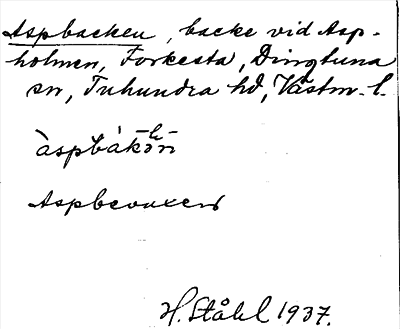 Aspbacken, backe vid Asp-
holmen, Forkesta, Dingtuna
sn, Tuhundra hd, Västm. l.
H. Ståhl 1937.